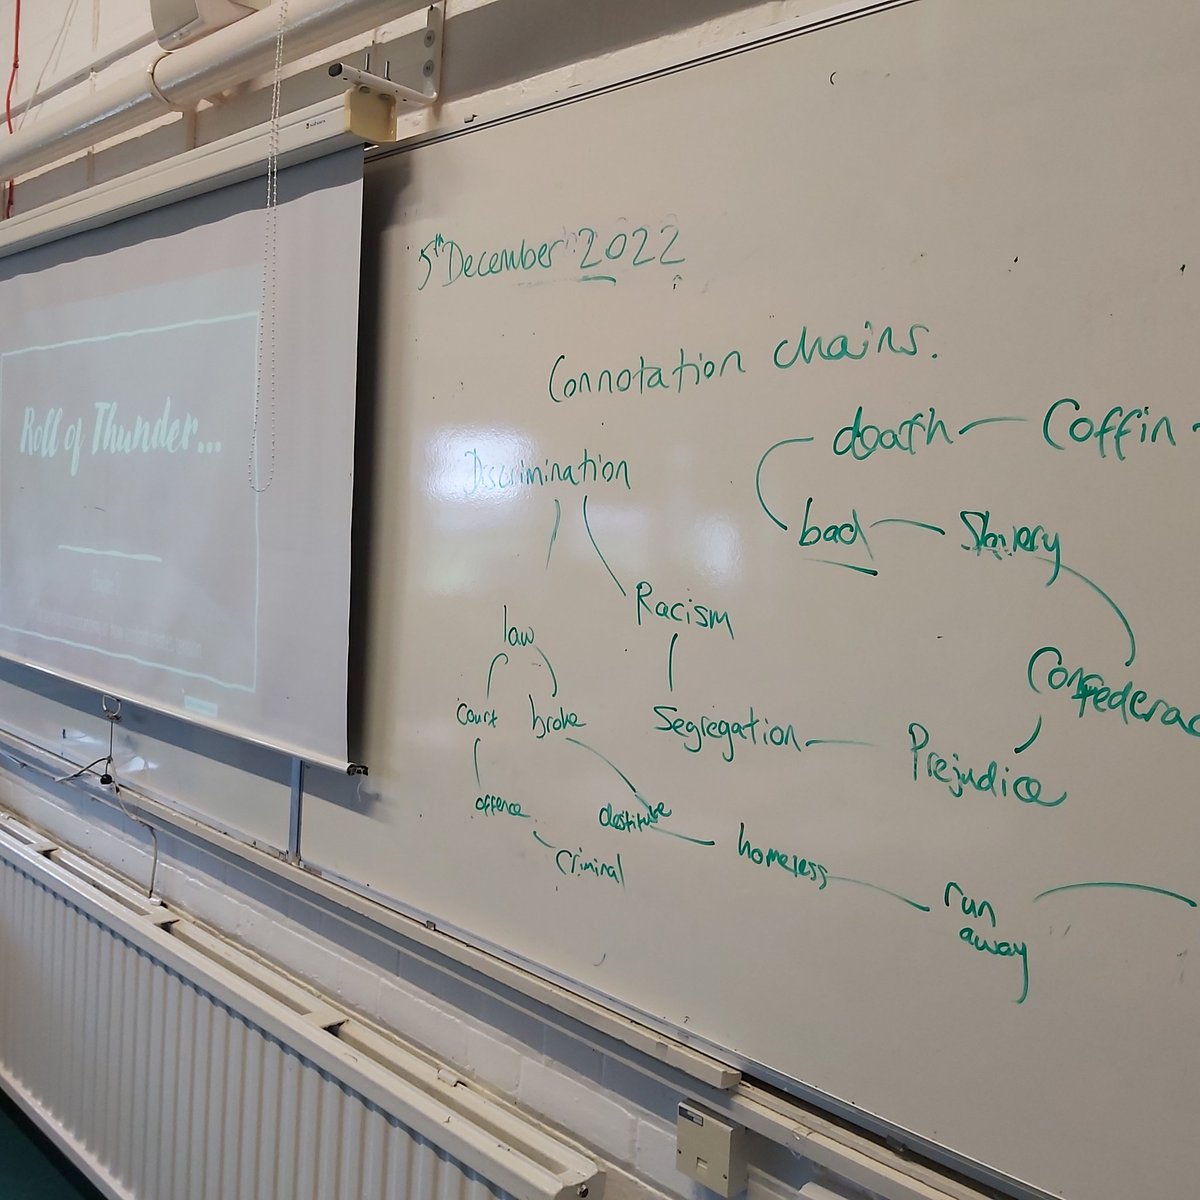 Roll of Thunder...
5th December 2022
Connotation chains.
Discrimination
death
Coffin
bad
Slavery
Racism
law
court
broke
Segregation
Prejudice
Confederac
offence
destitute
homeless
criminal
run
away